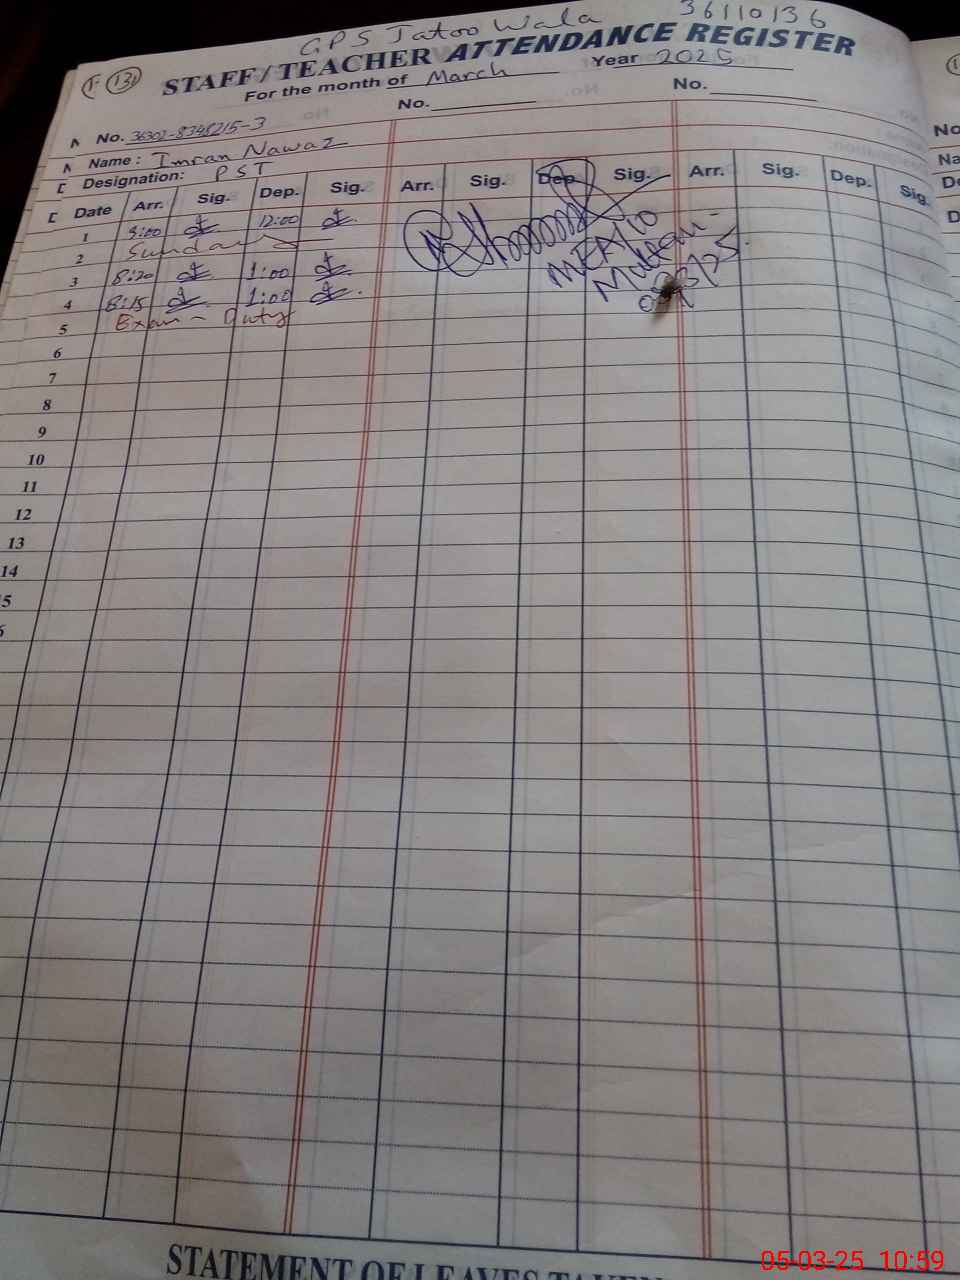 GPS Jatoo Wala 36110136
(13) STAFF/TEACHER ATTENDANCE REGISTER
For the month of March Year 2025
No. 36302-8348215-3 No. No.
Name : Imran Nawaz
Designation: PST
Date Arr. Sig. Dep. Sig. Arr. Sig. Dep. Sig. Arr. Sig. Dep. Sig.
1 9:00 12:00
2 Sunday
3 8:20 1:00
4 8:15 1:00
5 Exam - Duty
MEA
Multan
6
7
8
9
10
11
12
13
14
5
6
No
Na
De
D
STATEMENT OF LEAVES TAKEN
05-03-25 10:59